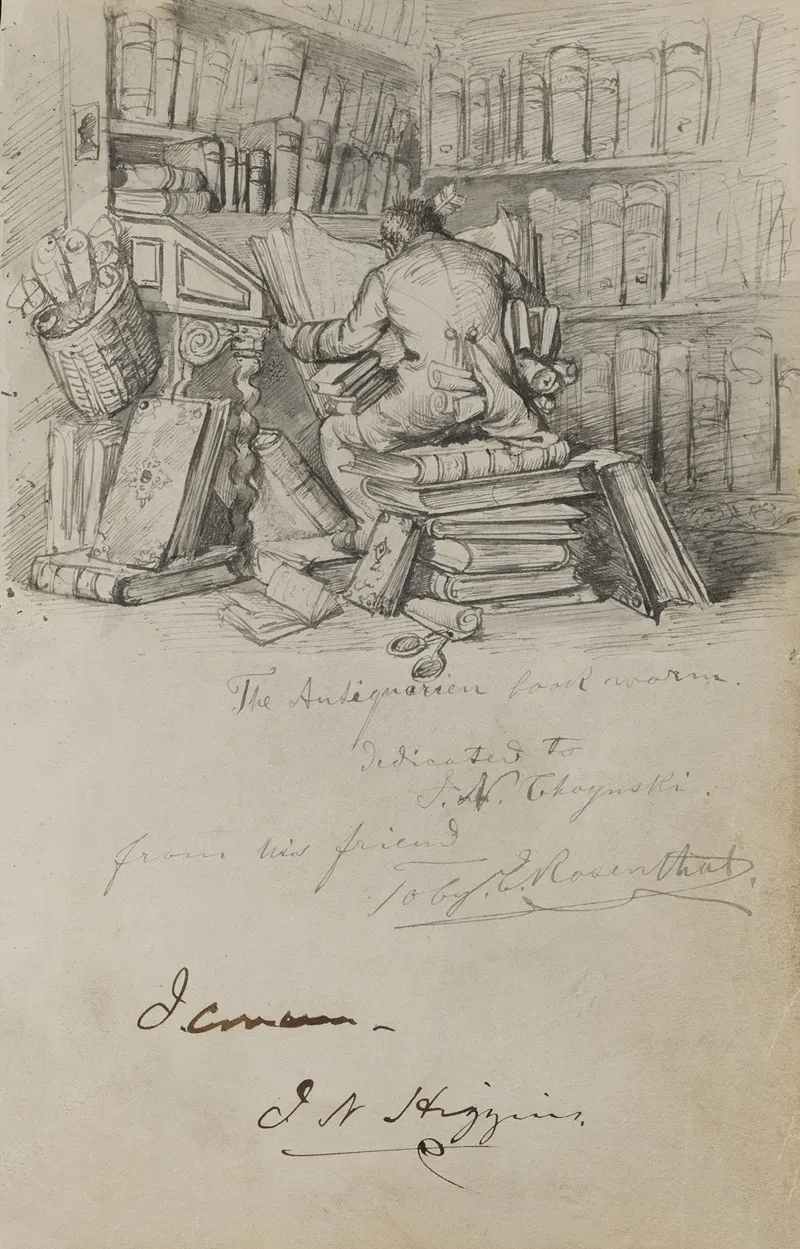 The Antiquarien book worm.
dedicated to
I. N. Choynski.
from his friend
Toby. E. Rosenthal.
J N Higgins.